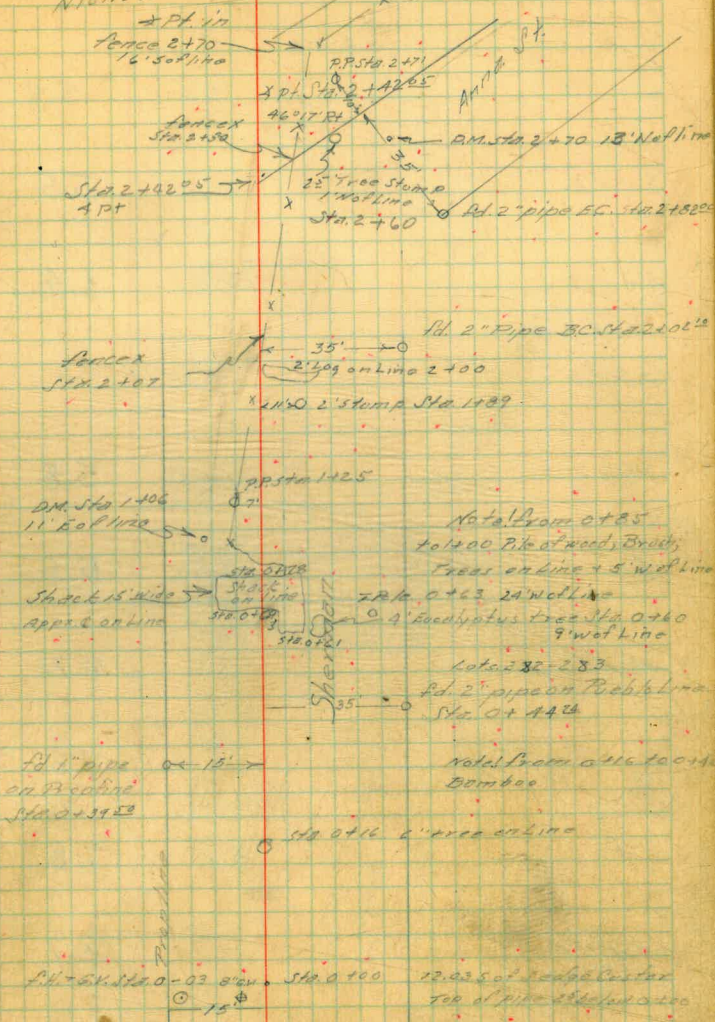 ∡ Pt. in
fence 2+70
6' S of line
P.P. Sta. 2+71
Anna St.
∡ pt Sta. 2+42⁰⁵
46°17' Rt
fence x
Sta. 2+50
P.M. Sta. 2+70 13' N of line
35'
Sta. 2+42⁰⁵
∡ Pt
Tree Stump
1' N of Line
Sta. 2+60
fd. 2" pipe E.C. Sta. 2+82
fd. 2" Pipe B.C. Sta 2+02
35'
fence x
Sta. 2+07
2' Log on Line 2+00
11' 2' stump Sta. 1+89
P.P. Sta 1+25
7'
Sta 1+06
11' E of line
Note! from 0+85
to 1+00 Pile of wood, Brush,
Trees on Line + 5' W of Line
Shack 15' wide
Appx. on Line
Shack
on line
0+63 24' W of Line
4' Eucalyptus tree Sta. 0+60
9' W of Line
Sta. 0+61
Sheridan
Lots 282-283
fd. 2" pipe on Pueblo Line
Sta. 0+44
35'
fd 1" pipe
on Line
Sta 0+39⁵⁰
15'
Note! from 0+16 to
Bamboo
Sta. 0+16 tree on Line
Prop Line
F.H. - G.V. Sta. 0-03 8" G.V.
Sta. 0+00
15'
72.03 S of Custer
Top of Pipe below 0+00